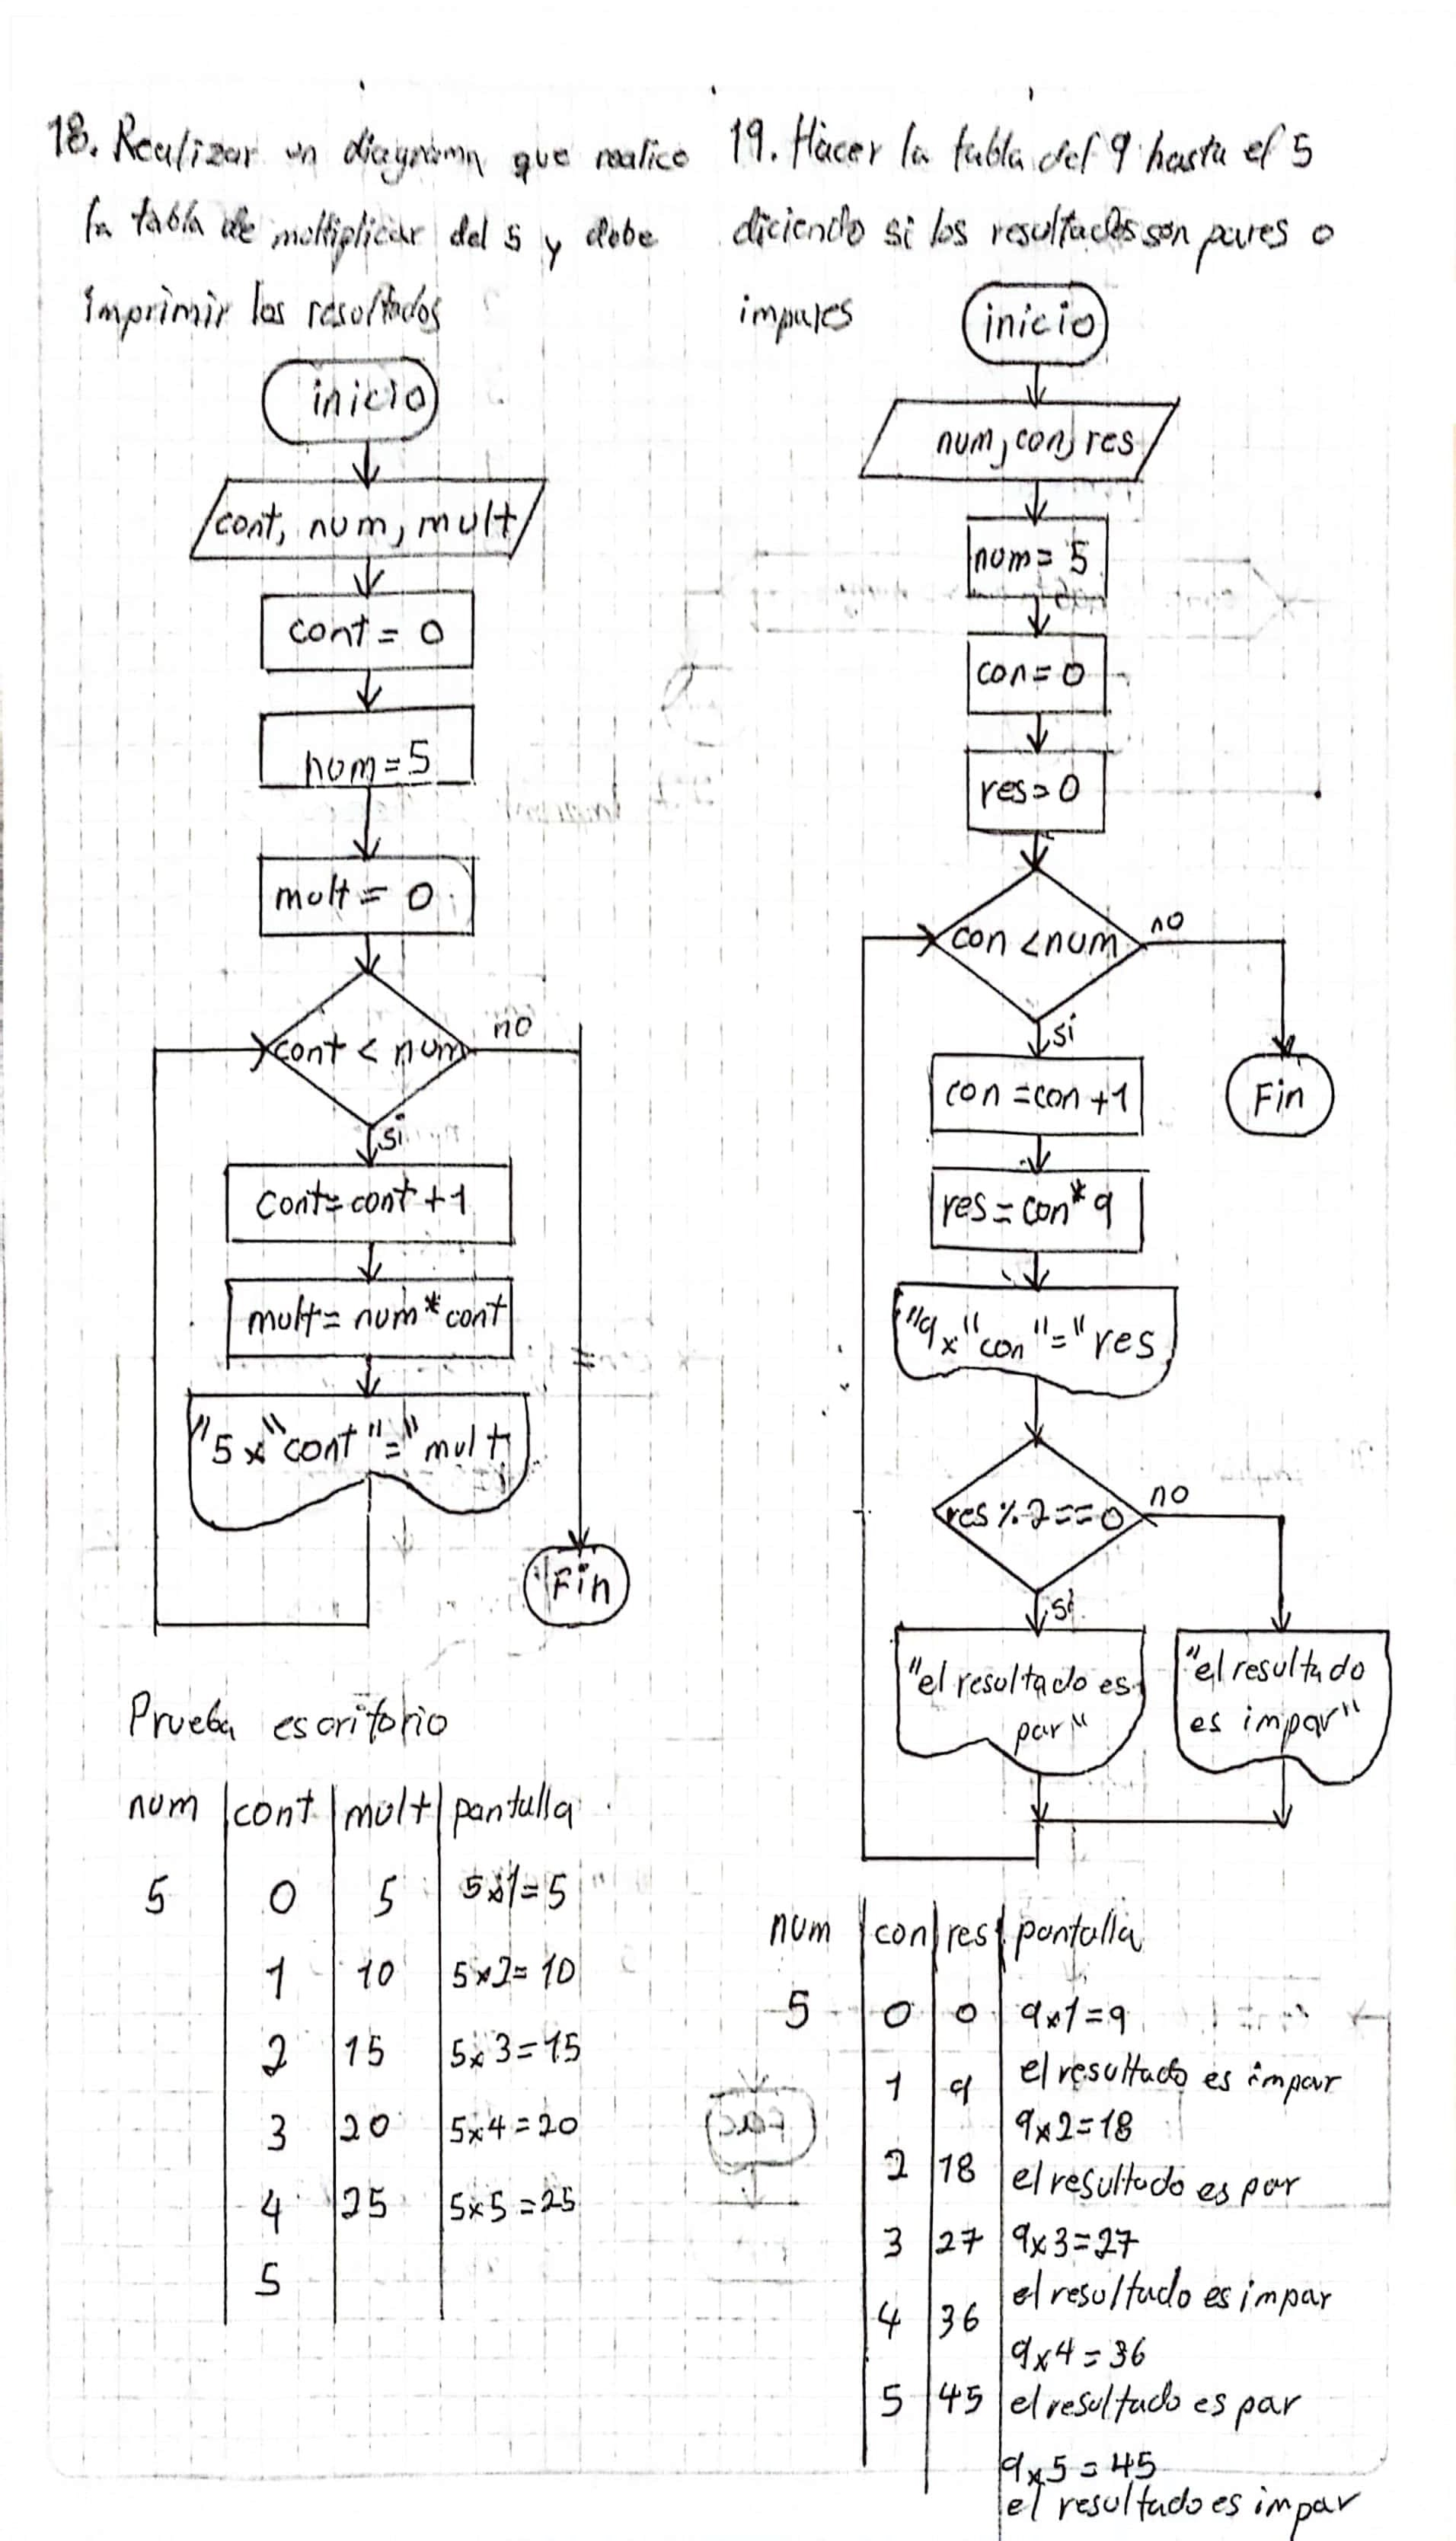 18. Realizar un diagrama que realice
la tabla de multiplicar del 5 y debe
imprimir los resultados
inicio
cont, num, mult
cont = 0
num = 5
mult = 0
cont < num
no
si
cont = cont + 1
mult = num * cont
"5 x" cont "=" mult
Fin
Prueba escritorio
num cont mult pantalla
5 0 5 5x1=5
1 10 5x2=10
2 15 5x3=15
3 20 5x4=20
4 25 5x5=25
5
19. Hacer la tabla del 9 hasta el 5
diciendo si los resultados son pares o
impares
inicio
num, con, res
num = 5
con = 0
res = 0
con < num
no
si
Fin
con = con + 1
res = con * 9
"9x" con "=" res
res % 2 == 0
no
si
"el resultado es
par"
"el resultado
es impar"
num con res pantalla
5 0 0 9x1=9
el resultado es impar
1 9
9x2=18
2 18 el resultado es par
3 27 9x3=27
el resultado es impar
4 36
9x4=36
5 45 el resultado es par
9x5=45
el resultado es impar